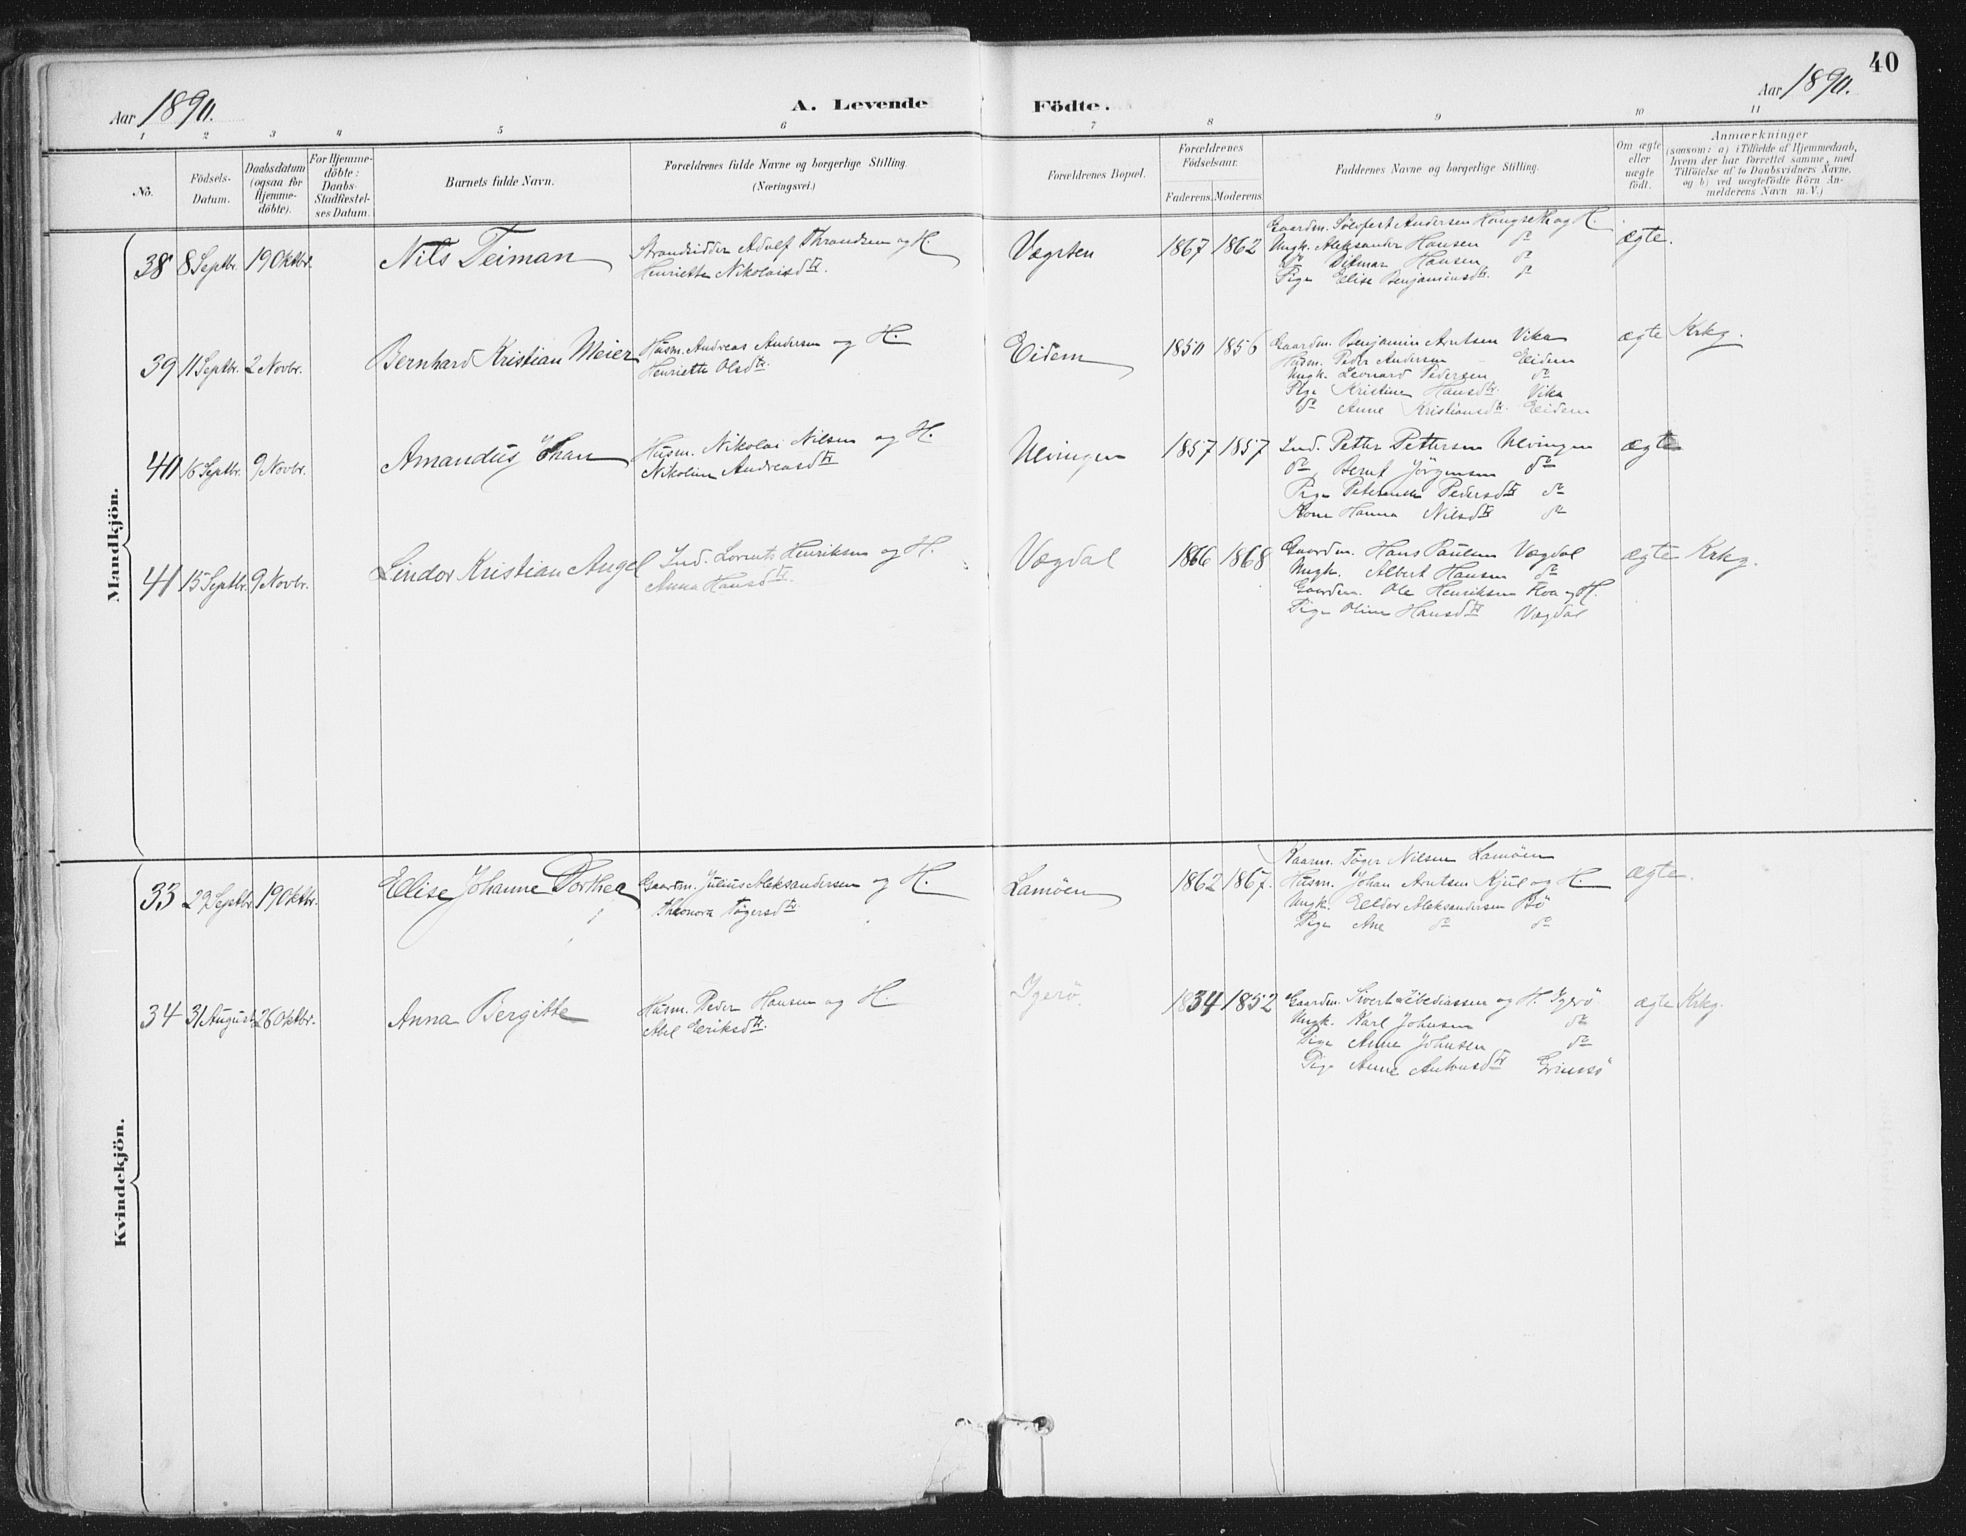 40
Aar 1890. A. Levende Födte. Aar 1890.
1 2 3 4 5 6 7 8 9 10 11
No.
Födsels-Datum.
Daabsdatum (ogsaa for Hjemme-döbte).
For Hjemme-döbte: Daabs-Stadfæstel-ses Datum.
Barnets fulde Navn.
Forældrenes fulde Navne og borgerlige Stilling.
(Næringsvei.)
Forældrenes Bopæl.
Forældrenes Födselsaar.
Faderens. Moderens.
Faddernes Navne og borgerlige Stilling.
Om ægte eller uægte födt.
Anmærkninger
(saasom: a) i Tilfælde af Hjemmedaab,
hvem der har forrettet samme, med
Tilföielse af to Daabsvidners Navne,
og b) ved uægtefödte Börn An-
melderens Navn m. V.)
Mandkjön.
38 8 Septbr. 19 Oktbr. Nils Teiman
Strandsidder Adolf Thrandsen og H.
Henriette Nikolaisdtr.
Vægsten 1867 1862
Gaardm. Sölvfest Andersen Kongseth og H.
Ungk. Aleksander Hansen do
do Ditmar Hansen do
Pige Elise Benjaminsdtr. do
ægte.
39 11 Septbr. 2 Novbr. Bernhard Kristian Meier
Husm. Andreas Andersen og H.
Henriette Olsdtr.
Eidem 1850 1856
Gaardm. Benjamin Arntsen Vika
Husm. Peder Andersen Eidem
Ungk. Leonard Pedersen do
Pige Kristine Hansdtr. Vika
do Anne Kristiansdtr. Eidem
ægte Krkg.
40 16 Septbr. 9 Novbr. Amandus Johan
Husm. Nikolai Nilsen og H.
Nikoline Andreasdtr
Ulvingen 1857 1857
Ind. Petter Pettersen Ulvingen
do Bernt Jörgensen do
Pige Pedersdtr do
Kone Hanna Nilsdtr do
ægte
41 15 Septbr. 9 Novbr. Lindor Kristian Angel
Ind. Lorents Henriksen og H.
Anna Hansdtr.
Vægdal 1866 1868
Gaardm. Hans Paulsen Vægdal
Ungk. Albert Hansen do
Gaardm. Ole Henriksen Floa og H.
Pige Oline Hansdtr Vægdal
ægte Krkg.
Kvindekjön.
33 29 Septbr. 19 Oktbr. Ellise Johanne Dorthea
Gaardm. Julius Aleksandersen og H.
Theonora Tögersdtr
Lamöen 1862 1867.
Kaarm. Töger Nilsen Lamöen
Husm. Johan Arntsen Kjul og H.
Ungk. Elldor Aleksandersen Bö
Pige Ane do do
ægte.
34 31 August 26 Oktbr. Anna Bergitte
Husm. Peder Hansen og H.
Abel Eriksdtr.
Igerö 1834 1852
Gaardm. Sivert Zebediassen og H. Igerö
Ungk. Karl Johnsen do
Pige Anne Johnsen do
Pige Anne Antonsdtr Grimsö
ægte Krkg.